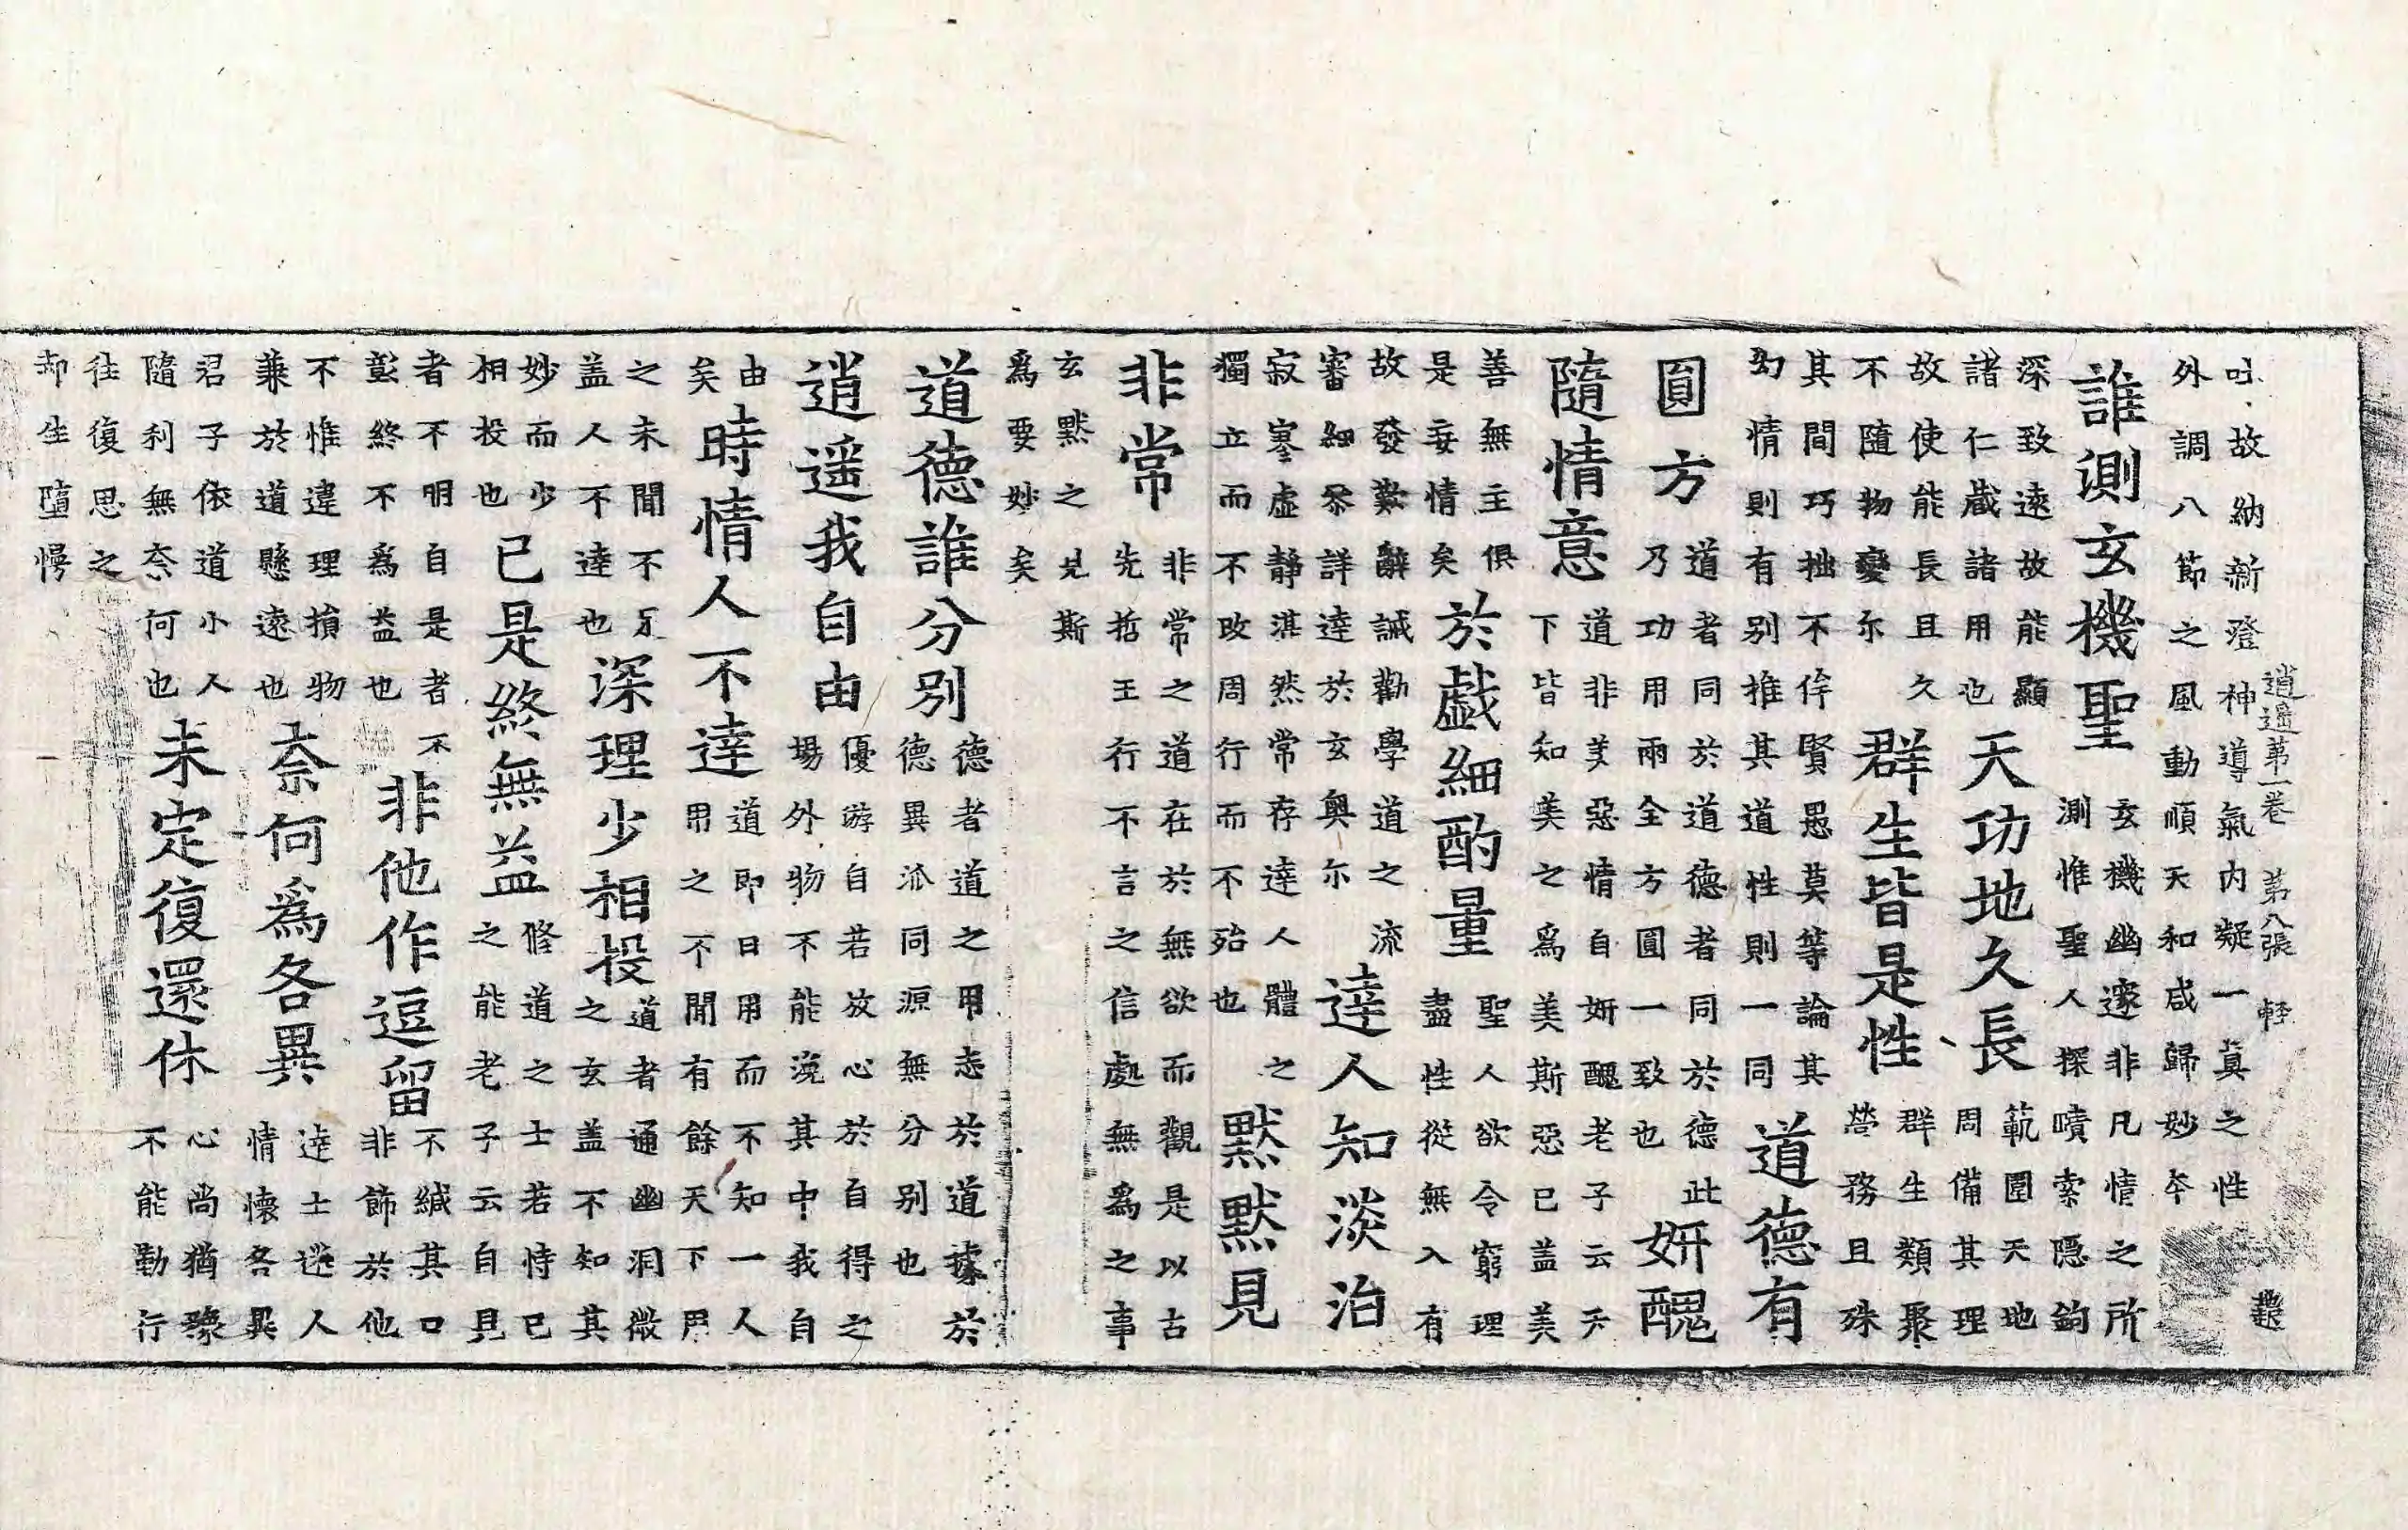 吐故納新澄神導氣内凝一真之性
外調八節之風動順天和咸歸妙夲
逍遥苐一卷 苐八張 軽
誰測玄機聖
玄機幽邃非凡情之所
測惟聖人探賾索隠鈎
深致遠故能顯
諸仁蔵諸用也
天功地久長
範圍天地
周備其理
故使能長且久
不隨物變尔
群生皆是性
群生類聚
營務且殊
其間巧拙不侔賢愚莫等論其
幻情則有别推其道性則一同
道德有
圓方
道者同於道德者同於德此
乃功用兩全方圓一致也
妍醜
隨情意
道非羙惡情自妍醜老子云天
下皆知美之爲美斯惡已盖美
善無主俱
是妄情矣
於戯細酌量
聖人欲令窮理
盡性從無入有
故發歎辭誡勸學道之流
審細叅詳達於玄奥尔
達人知淡治
寂寥虚靜湛然常存達人體之
獨立而不改周行而不殆也
默默見
非常
非常之道在於無欲而觀是以古
先哲王行不言之信處無爲之事
玄默之見斯
爲要妙矣
道德誰分别
德者道之用志於道據於
德異派同源無分别也
逍遥我自由
優游自若放心於自得之
場外物不能溷其中我自
由
矣
時情人不達
道即日用而不知一人
用之不聞有餘天下用
之未聞不足
盖人不達也
深理少相投
道者通幽洞微
之玄盖不知其
妙而少
相投也
已是終無益
修道之士若恃已
之能老子云自見
者不明自是者不
彰終不爲益也
非他作逗留
不緘其口
非飾於他
不惟違理損物
兼於道懸遠也
奈何爲各異
達士迷人
情懷各異
君子依道小人
隨利無奈何也
未定復還休
心尚猶豫
不能勤行
往復思之
却生墮慢